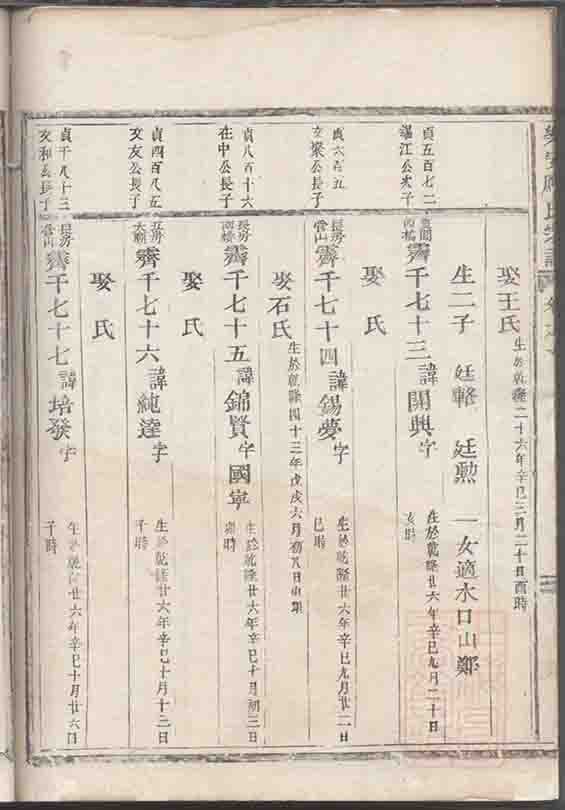 娶王氏 生於乾隆二十六年辛巳三月二十日酉時
生二子 廷轄 廷勲 一女適水口山鄭
貞五百七二
公次子
千七十三 諱開興 字 生於乾隆廿六年辛巳九月二十日亥時
娶 氏
貞六百五
立衆公長子
長房 霽千七十四 諱錫夢 字 生於乾隆廿六年辛巳九月廿二日巳時
娶石氏 生於乾隆四十三年戊戌六月初八日
貞八百十六
在中公長子
長房 霽千七十五 諱錦賢 字國寧 生於乾隆廿六年辛巳十月初三日卯時
娶 氏
貞四百八五
文友公長子
霽千七十六 諱純達 字 生於乾隆廿六年辛巳十月十二日子時
娶 氏
貞千八十三
文和公長子
長房 霽千七十七 諱培發 字 生於乾隆廿六年辛巳十月廿六日子時